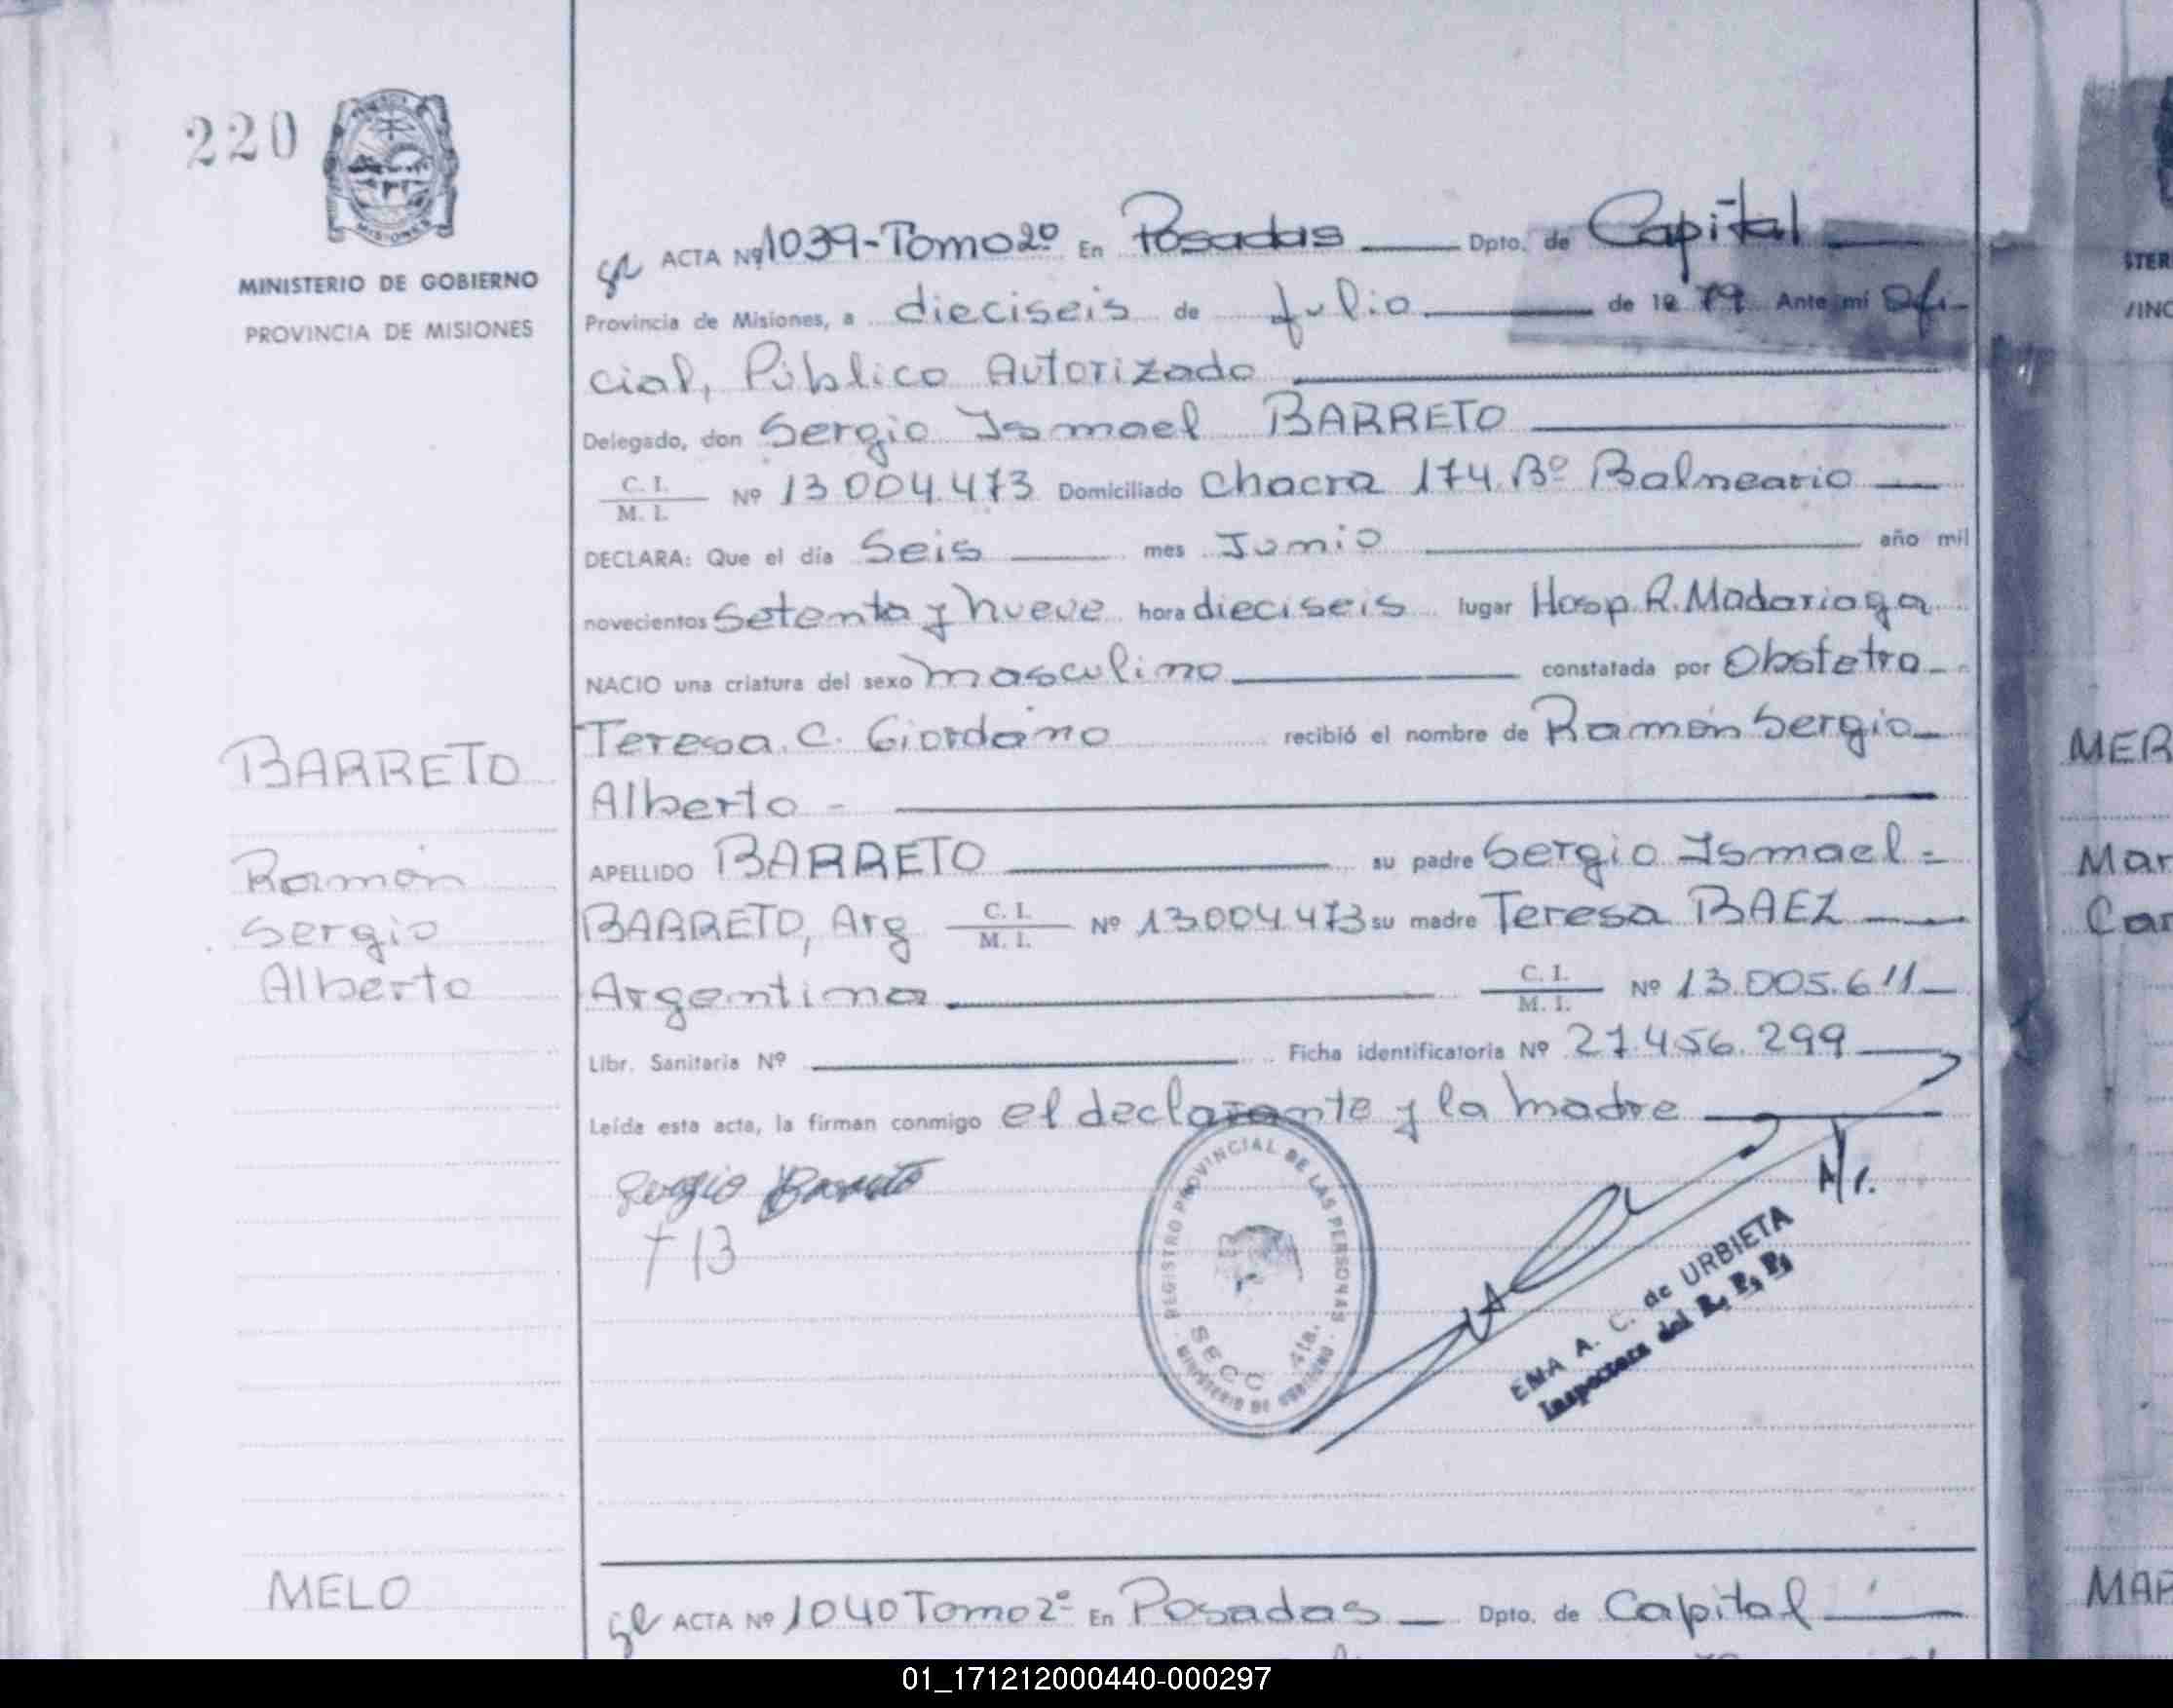 220
MISIONES
MINISTERIO DE GOBIERNO
PROVINCIA DE MISIONES
ACTA Nº 1039-Tomo 2º En Posadas Dpto. de Capital
Provincia de Misiones, a dieciseis de Julio de 19 79 Ante mi Ofi-
cial, Público Autorizado
Delegado, don Sergio Ismael BARRETO
C. I.
M. I. Nº 13.004.473 Domiciliado Chacra 174. Bº Balneario
DECLARA: Que el día Seis mes Junio año mil
novecientos Setenta y nueve hora dieciseis lugar Hosp. R. Madariaga
NACIO una criatura del sexo masculino constatada por Obstetra
Teresa. C. Giordano recibió el nombre de Ramón Sergio
Alberto
APELLIDO BARRETO su padre Sergio Ismael
BARRETO, Arg C. I.
M. I. Nº 13.004.473 su madre Teresa BAEZ
Argentina C. I.
M. I. Nº 13.005.611
Libr. Sanitaria Nº Ficha identificatoria Nº 27.456.299
Leída esta acta, la firman conmigo el declarante y la madre
BARRETO
Ramón
Sergio
Alberto
Sergio Barreto
REGISTRO PROVINCIAL DE LAS PERSONAS
SECC 4ta.
MINISTERIO DE GOBIERNO
EMA A. C. de URBIETA
Inspectora del R. P. P.
MELO
ACTA Nº 1040 Tomo 2º En Posadas Dpto. de Capital
STER
VINC
MER
Mar
Car
MAR
01_171212000440-000297